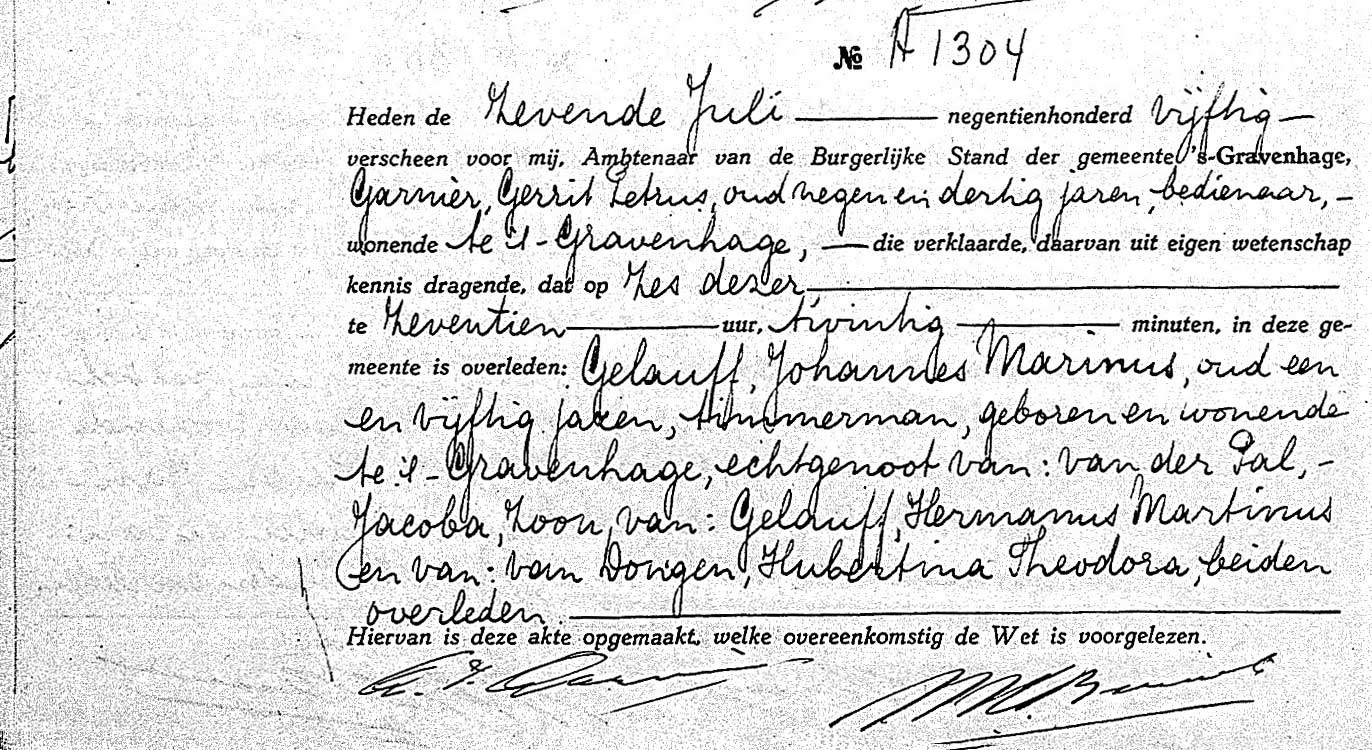 № A 1304
Heden de Zevende Juli — negentienhonderd vijftig —
verscheen voor mij, Ambtenaar van de Burgerlijke Stand der gemeente 's-Gravenhage,
Garnier, Gerrit Petrus, oud negen en dertig jaren, bedienaar, -
wonende te 's-Gravenhage, — die verklaarde, daarvan uit eigen wetenschap
kennis dragende, dat op Zes dezer,
te Zeventien — uur, twintig — minuten, in deze ge-
meente is overleden: Gelauff, Johannes Marinus, oud een
en vijftig jaren, timmerman, geboren en wonende
te 's-Gravenhage, echtgenoot van: van der Pal, -
Jacoba, Zoon van: Gelauff, Hermanus Martinus
en van: van Dongen, Hubertina Theodora, beiden
overleden.
Hiervan is deze akte opgemaakt, welke overeenkomstig de Wet is voorgelezen.